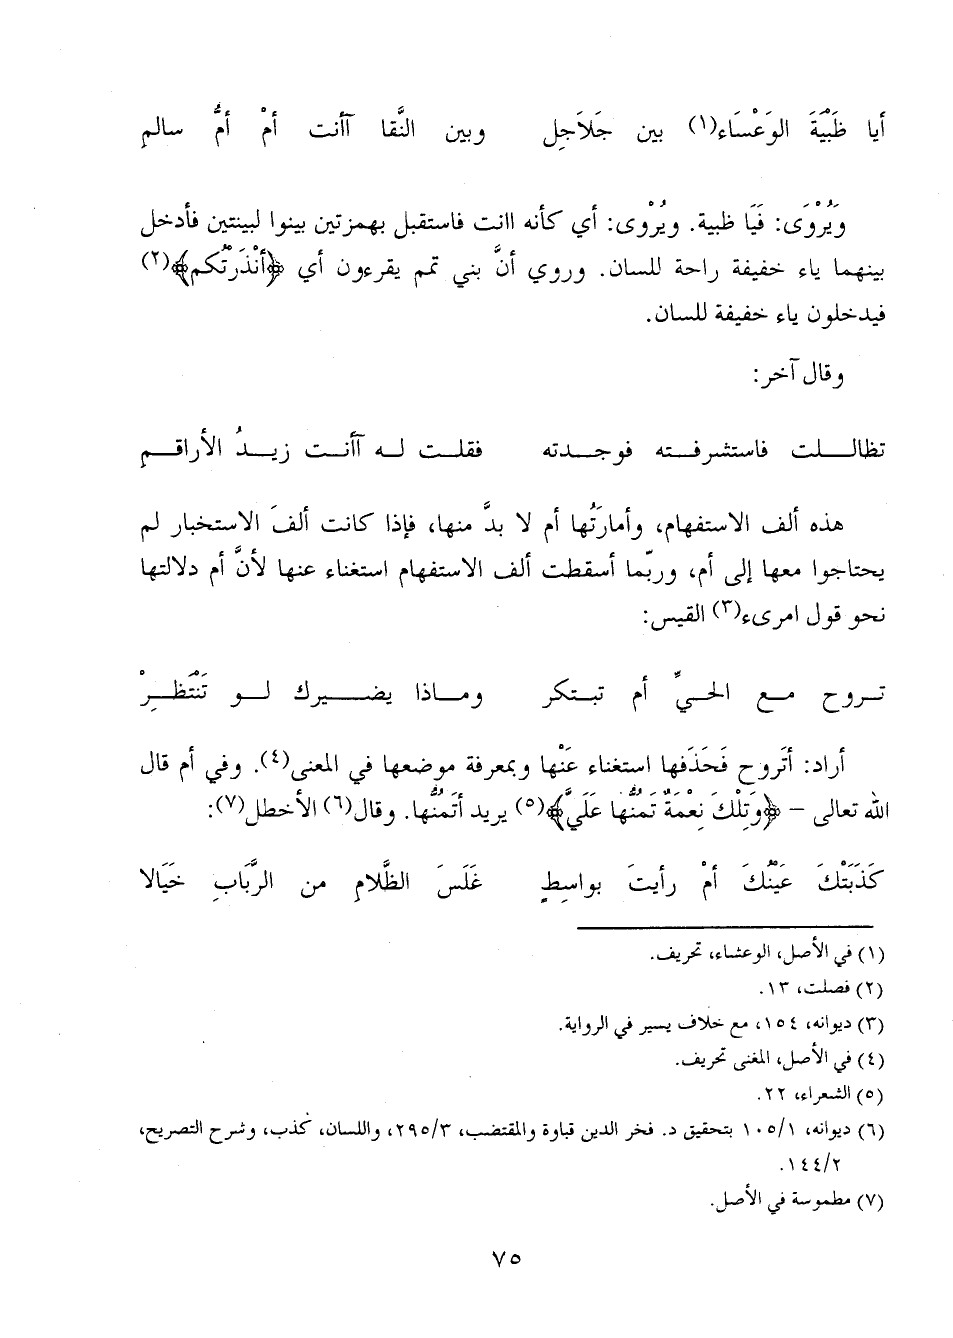 أيا ظَبْيَةَ الوَعْسَاء(١) بين جَلاَجِل وبين النَّقا آأنت أمْ أمُّ سالمِ
ويُرْوَى: فَيَا ظبية. ويُرْوى: أي كأنه اانت فاستقبل بهمزتين بينوا لبينتين فأدخل
بينهما ياء خفيفة راحة للسان. وروي أنَّ بني تمم يقرءون أي ﴿أنْذَرَتْكم﴾(٢)
فيدخلون ياء خفيفة للسان.
وقال آخر:
تظاللت فاستشرفته فوجدته فقلت له آأنت زيدُ الأراقم
هذه ألف الاستفهام، وأمارَتُها أم لا بدَّ منها، فإذا كانت ألفَ الاستخبار لم
يحتاجوا معها إلى أم، وربّما أسقطت ألف الاستفهام استغناء عنها لأنَّ أم دلالتها
نحو قول امرىء(٣) القيس:
تروح مع الحيِّ أم تبتكر وماذا يضيرك لو تَنْتَظِرْ
أراد: أتَروح فَحَذَفها استغناء عَنْها وبمعرفة موضعها في المعنى(٤). وفي أم قال
الله تعالى – ﴿وَتِلْكَ نِعْمَةٌ تَمنُّها عَلَيَّ﴾(٥) يريد أتَمنُّها. وقال(٦) الأخطل(٧):
كَذَبَتْكَ عَيْنُكَ أمْ رأيتَ بواسِطٍ غَلَسَ الظَّلامِ من الرَّبَابِ خَيَالا
(١) في الأصل، الوعشاء، تحريف.
(٢) فصلت، ١٣.
(٣) ديوانه، ١٥٤، مع خلاف يسير في الرواية.
(٤) في الأصل، المغنى تحريف.
(٥) الشعراء، ٢٢.
(٦) ديوانه، ١٠٥/١ بتحقيق د. فخر الدين قباوة والمقتضب، ٢٩٥/٣، واللسان، كذب، وشرح التصريح،
١٤٤/٢.
(٧) مطموسة في الأصل.
٧٥